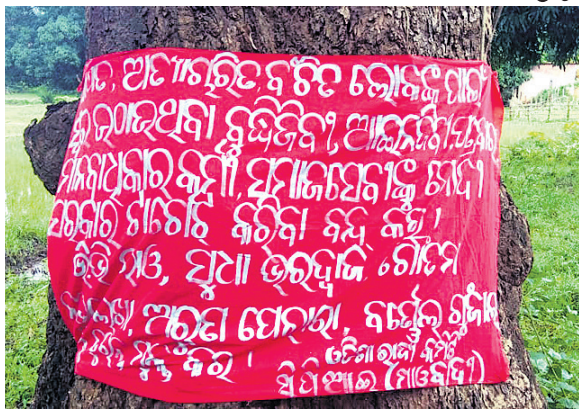 ଅତ୍ୟାଚାରିତ, ବଂଚିତ ଲୋକଙ୍କ ପାଇଁ
ସ୍ୱର ଉଠାଉଥିବା ବୁଦ୍ଧିଜିବୀ, ଆଇନଜିବୀ,
ମାନବାଧିକାର କର୍ମୀ, ସମାଜସେବୀଙ୍କୁ ମୋଦୀ
ସରକାର ଟାର୍ଗେଟ୍ କରିବା ବନ୍ଦ କର !
ଭିଭି ରାଓ, ସୁଧା ଭରଦ୍ୱାଜ, ଗୌତମ
ଅରୁଣ ପେରାରା, ବର୍ଣ୍ଣୋଲ
ମୁକ୍ତ କର । ଓଡିଶା ରାଜ୍ୟ କମିଟି
ସିପିଆଇ (ମାଓବାଦୀ)